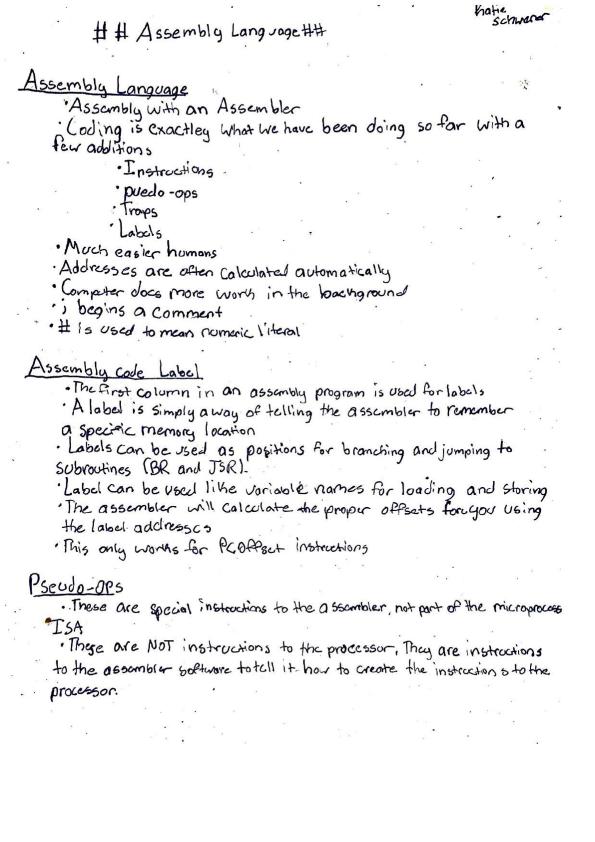 Katie
Schwarer
## Assembly Language##
Assembly Language
• Assembly with an Assembler
• Coding is exactley what we have been doing so far with a
few additions
• Instructions
• puedo-ops
• Traps
• Labels
• Much easier humans
• Addresses are often calculated automatically
• Computer does more work in the background
• ; begins a comment
• # is used to mean numeric literal
Assembly code Label
• The first column in an assembly program is used for labels
• A label is simply a way of telling the assembler to remember
a specific memory location
• Labels can be used as positions for branching and jumping to
subroutines (BR and JSR).
• Label can be used like variable names for loading and storing
• The assembler will calculate the proper offsets for you using
the label addresses
• This only works for PCOffset instructions
Pseudo-ops
• These are special instructions to the assembler, not part of the microprocess
ISA
• These are NOT instructions to the processor, They are instructions
to the assembler software to tell it how to create the instructions to the
processor.